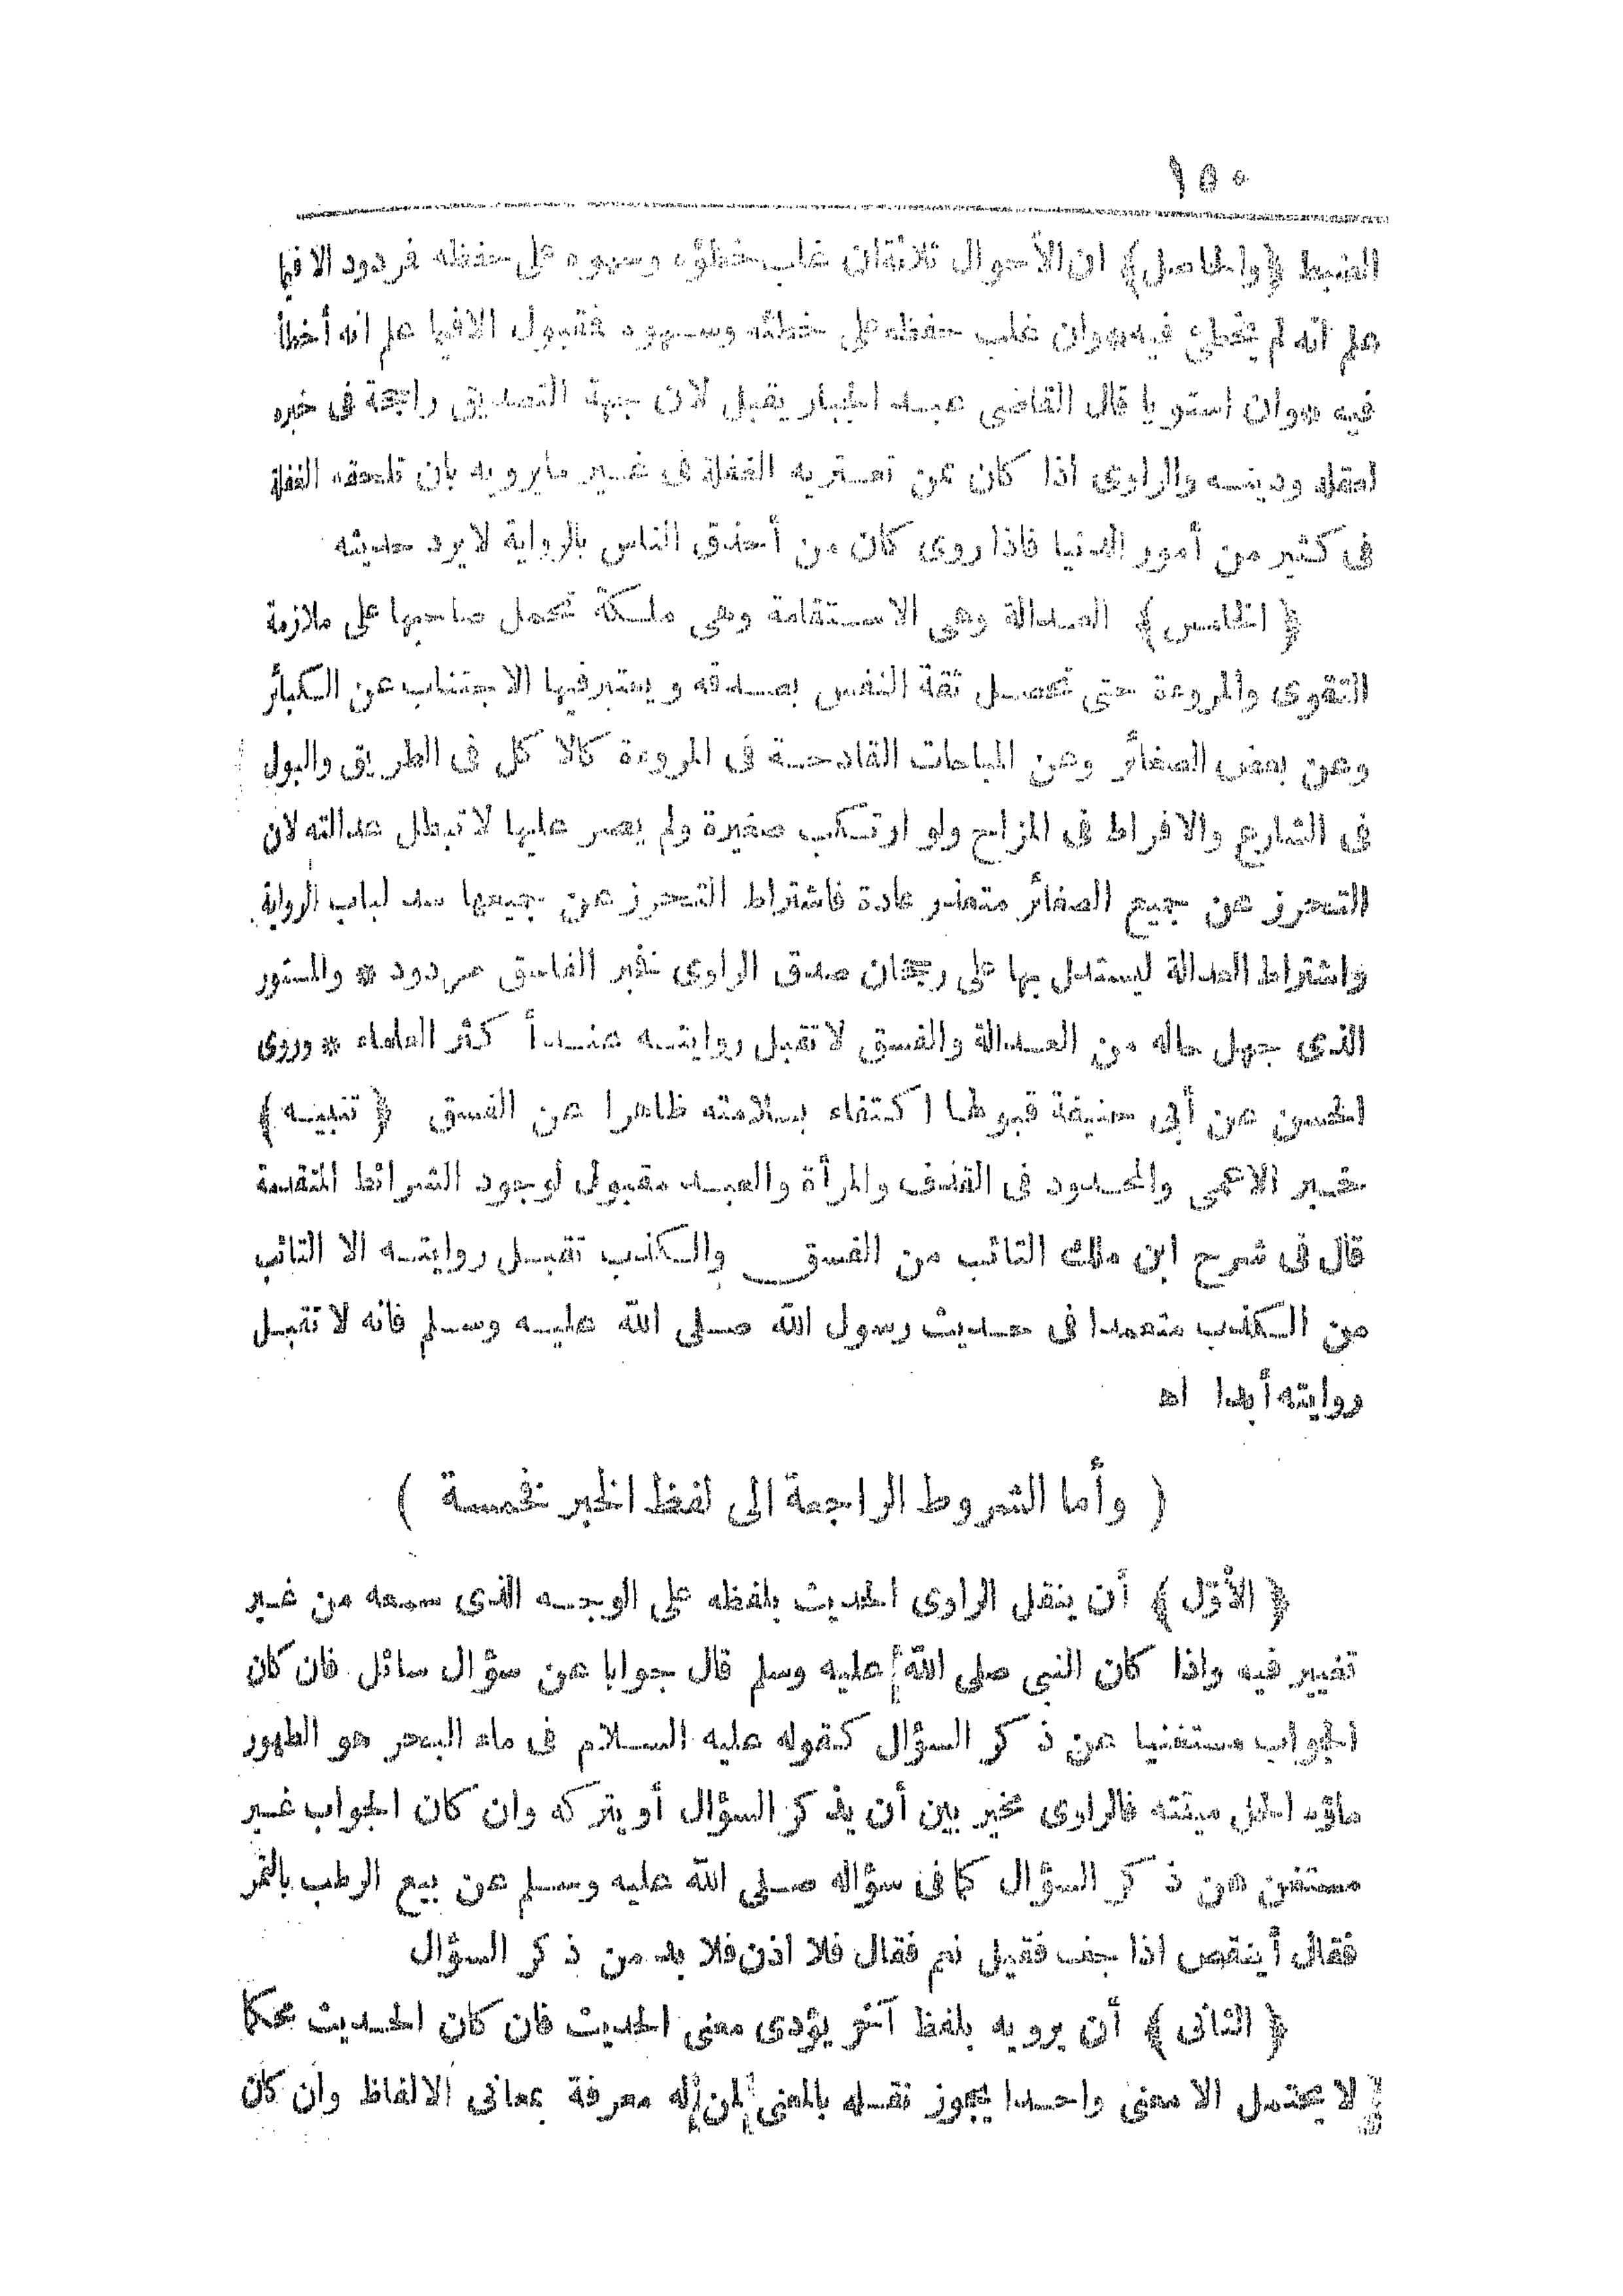 ١٥٠
الضبط ﴿والحاصل﴾ ان الأحوال ثلاثة ان غلب خطؤه وسهوه على حفظه فردود الا فيما
علم انه لم يخطئ فيه * وان غلب حفظه على خطئه وسهوه فقبول الا فيما علم انه أخطأ
فيه * وان استويا قال القاضى عبد الجبار يقبل لان جهة التصديق راجحة فى خبره
لعقله ودينه والراوى اذا كان عن تعتريه الغفلة فى غير مايرويه بان تلحقه الغفلة
فى كثير من أمور الدنيا فاذا روى كان من أحذق الناس بالرواية لا يرد حديثه
﴿الخامس﴾ العدالة وهى الاستقامة وهى ملكة تحمل صاحبها على ملازمة
التقوى والمروءة حتى تحصل ثقة النفس بصدقه ويعتبر فيها الاجتناب عن الكبائر
وعن بعض الصغائر وعن المباحات القادحة فى المروءة كالاكل فى الطريق والبول
فى الشارع والافراط فى المزاح ولو ارتكب صغيرة ولم يصر عليها لا تبطل عدالته لان
التحرز عن جميع الصغائر متعذر عادة فاشتراط التحرز عن جميعها سد لباب الرواية
واشتراط العدالة ليستدل بها على رجحان صدق الراوى فخبر الفاسق مردود * والمستور
الذى جهل حاله من العدالة والفسق لا تقبل روايته عند أكثر العلماء * وروى
الحسن عن أبى حنيفة قبولها اكتفاء بسلامته ظاهرا عن الفسق ﴿تنبيه﴾
خبر الاعمى والمحدود فى القذف والمرأة والعبد مقبول لوجود الشرائط المتقدمة
قال فى شرح ابن ملك التائب من الفسق والكذب تقبل روايته الا التائب
من الكذب متعمدا فى حديث رسول الله صلى الله عليه وسلم فانه لا تقبل
روايته أبدا اه
( وأما الشروط الراجعة الى لفظ الخبر فخمسة )
﴿الأوّل﴾ أن ينقل الراوى الحديث بلفظه على الوجه الذى سمعه من غير
تغيير فيه واذا كان النبى صلى الله عليه وسلم قال جوابا عن سؤال سائل فان كان
الجواب مستغنيا عن ذكر السؤال كقوله عليه السلام فى ماء البحر هو الطهور
ماؤه الحل ميتته فالراوى مخير بين أن يذكر السؤال أو يتركه وان كان الجواب غير
مستغن عن ذكر السؤال كما فى سؤاله صلى الله عليه وسلم عن بيع الرطب بالتمر
فقال أينقص اذا جف فقيل نعم فقال فلا اذن فلا بد من ذكر السؤال
﴿الثانى﴾ أن يرويه بلفظ آخر يؤدى معنى الحديث فان كان الحديث محكما
لا يحتمل الا معنى واحدا يجوز نقله بالمعنى لمن له معرفة بمعانى الالفاظ وان كان